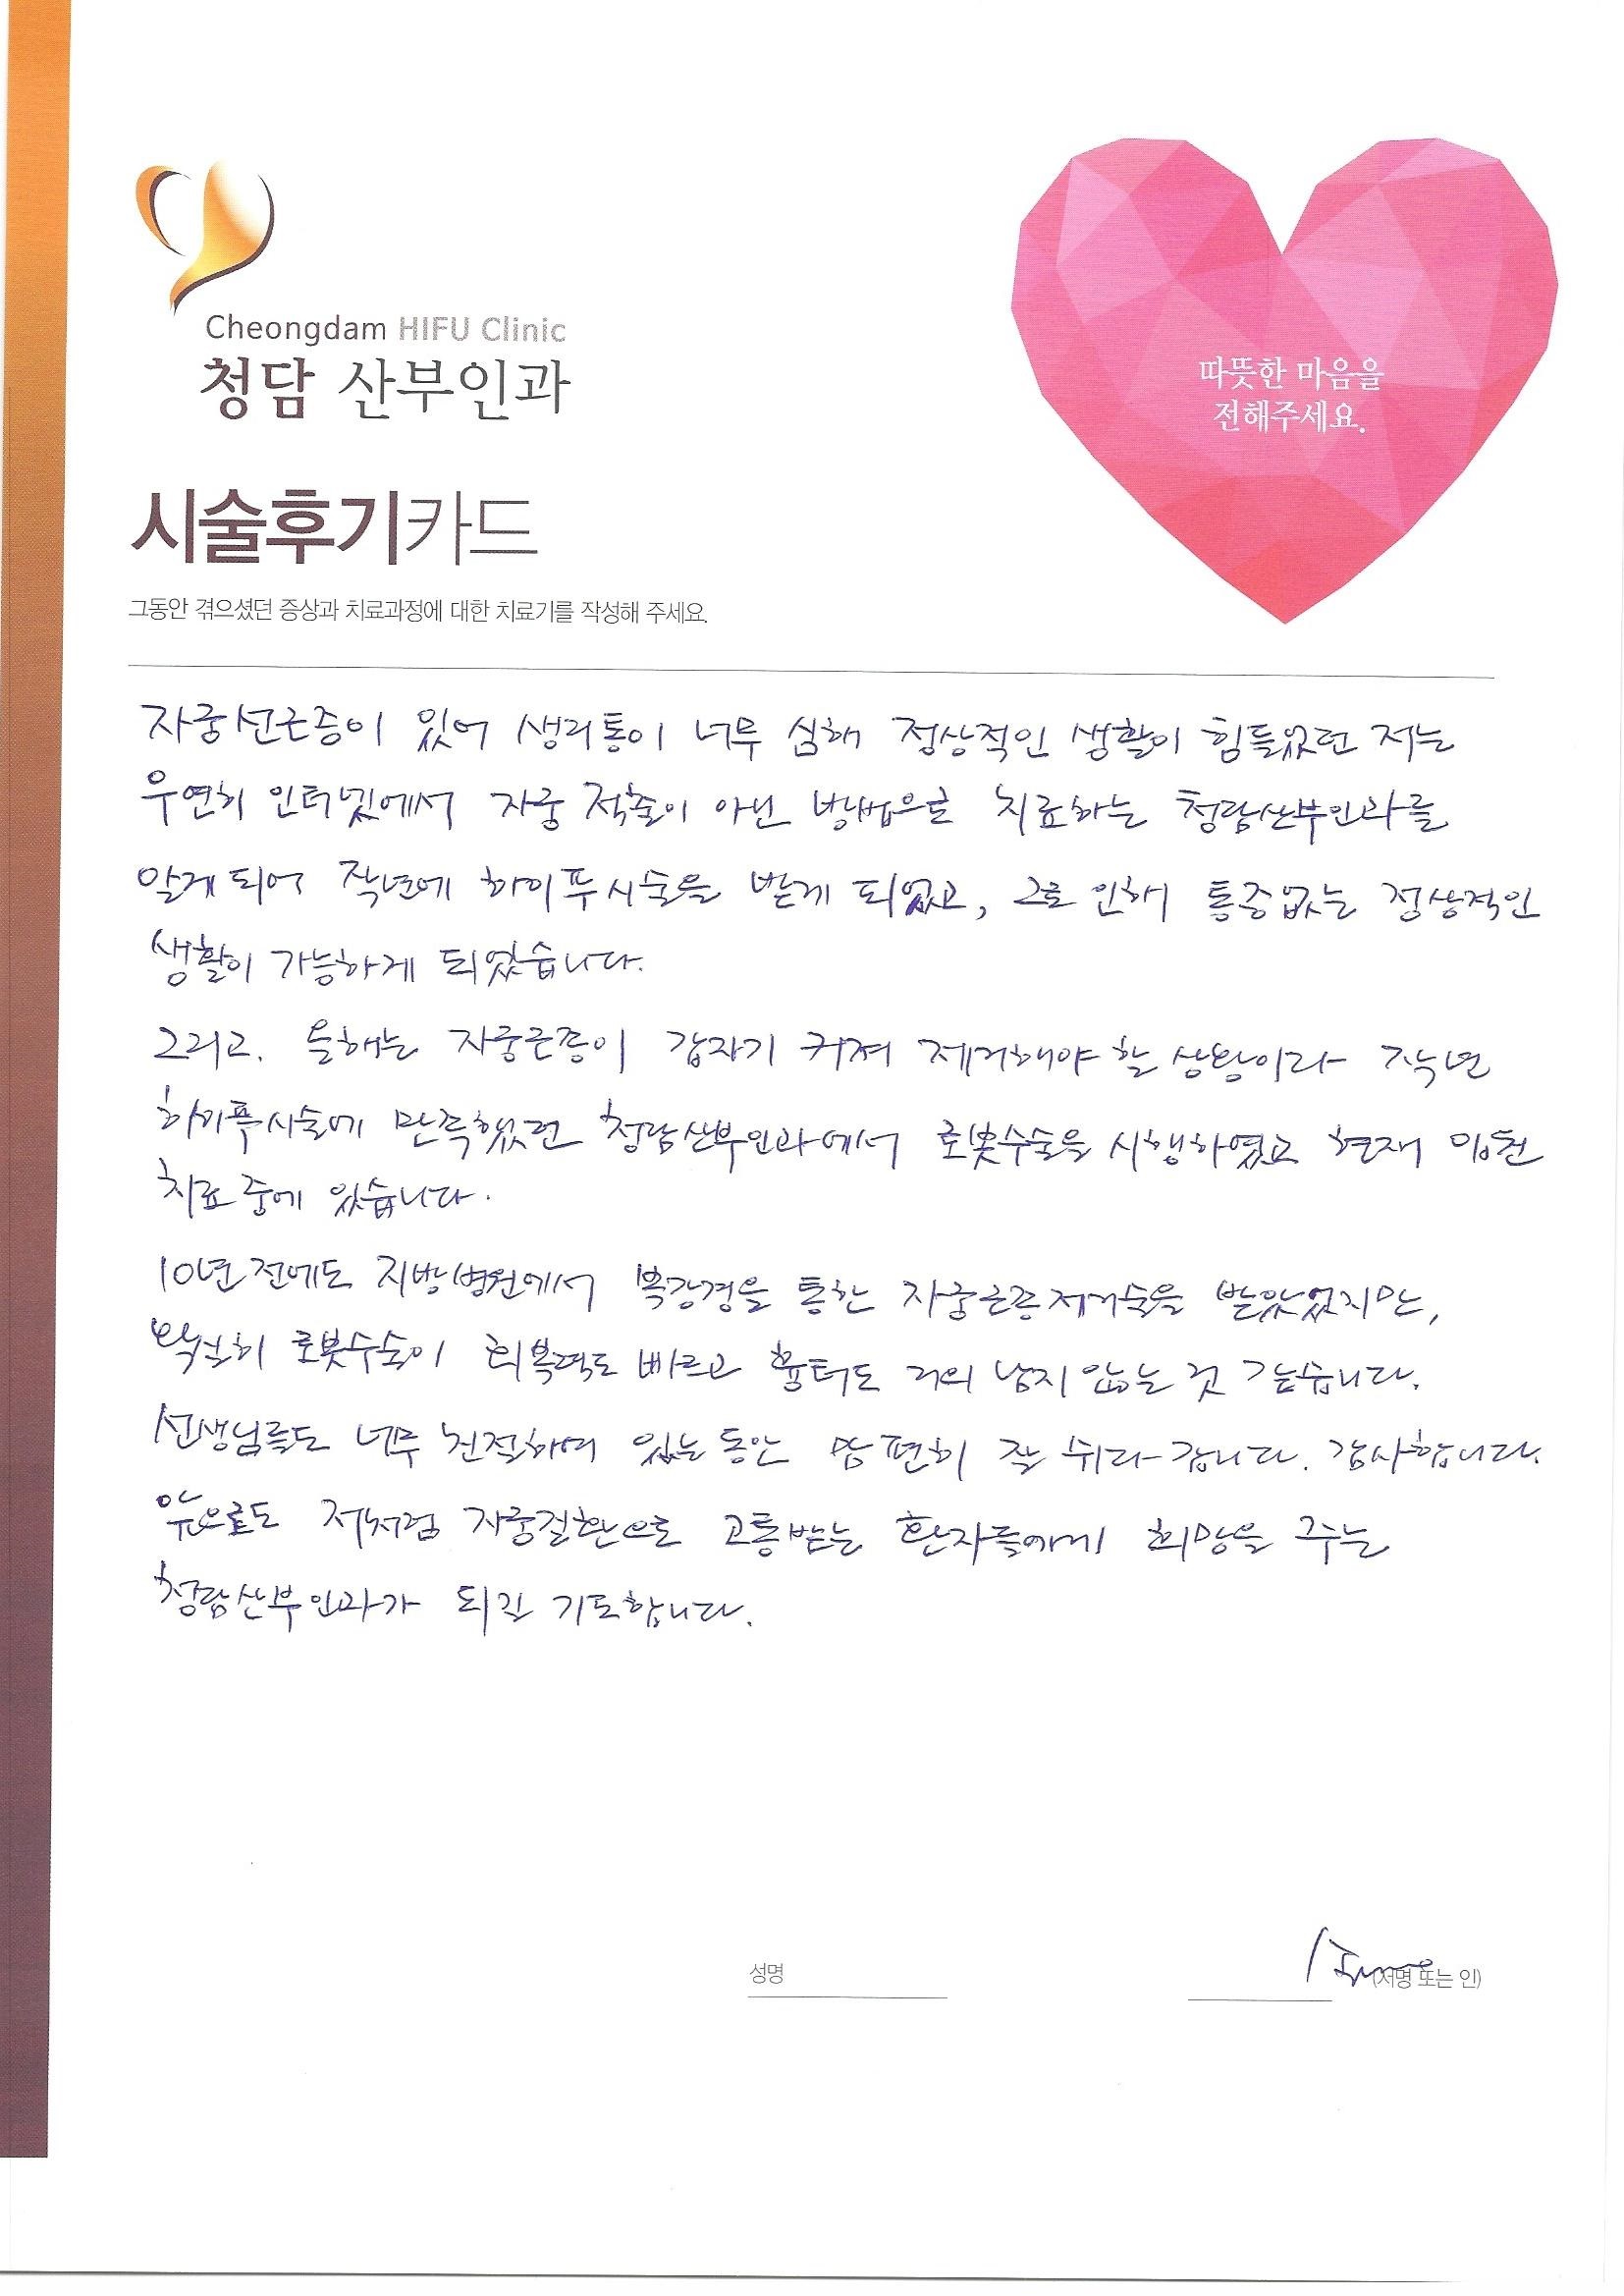 Cheongdam HIFU Clinic
청담 산부인과
따뜻한 마음을
전해주세요.
시술후기카드
그동안 겪으셨던 증상과 치료과정에 대한 치료기를 작성해 주세요.
자궁선근증이 있어 생리통이 너무 심해 정상적인 생활이 힘들었던 저는
우연히 인터넷에서 자궁 적출이 아닌 방법으로 치료하는 청담산부인과를
알게 되어 작년에 하이푸시술을 받게 되었고, 그로 인해 통증없는 정상적인
생활이 가능하게 되었습니다.
그리고. 올해는 자궁근종이 갑자기 커져 제거해야 할 상황이라 작년
하이푸시술에 만족했었던 청담산부인과에서 로봇수술을 시행하였고 현재 입원
치료 중에 있습니다.
10년전에도 지방병원에서 복강경을 통한 자궁근종제거술을 받았었지만,
확실히 로봇수술이 회복력도 빠르고 흉터도 거의 남지 않는 것 같습니다.
선생님들도 너무 친절하며 있는동안 맘 편히 잘 쉬다 갑니다. 감사합니다.
앞으로도 저처럼 자궁질환으로 고통받는 환자들에게 희망을 주는
청담산부인과가 되길 기도합니다.
성명 (서명 또는 인)